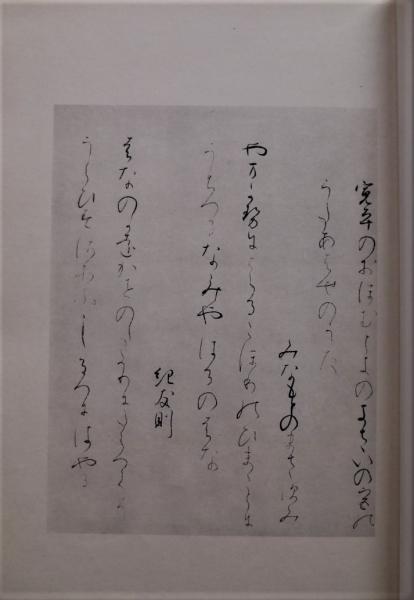 寛平のおほむときのきさいの宮の
うたあはせのうた
みなもとのまさすみ
やまかせにとくるこほりのひまことに
うちいつるなみやはるのはな
紀友則
はなのかをかせのたよりにたくへてそ
うくひすさそふしるへにはやる